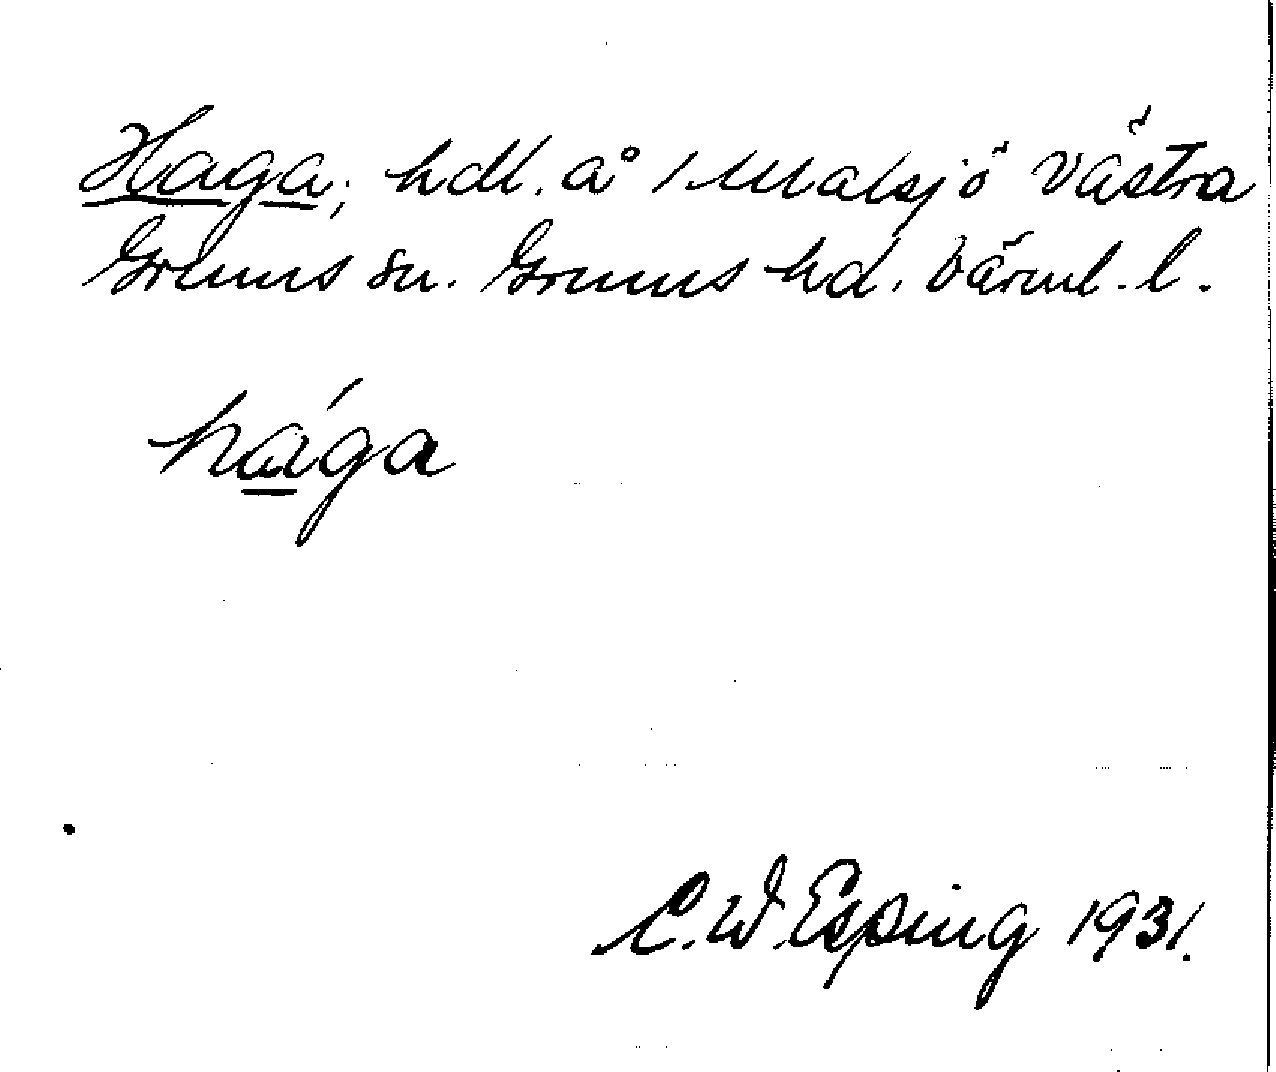 Haga, hdl. å 1 Malsjö Västra
Grums sn. Grums hd. Värml. l.
hága
C.W. Esping 1931.